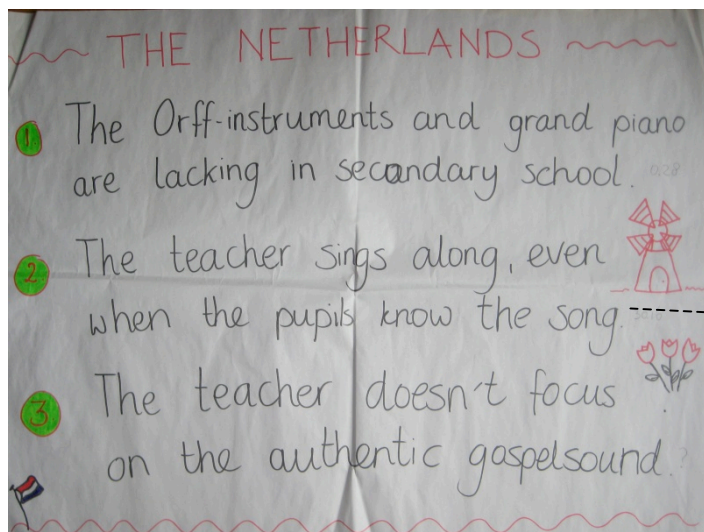 THE NETHERLANDS
1 The Orff-instruments and grand piano
are lacking in secondary school.
2 The teacher sings along, even
when the pupils know the song.
3 The teacher doesn't focus
on the authentic gospelsound.